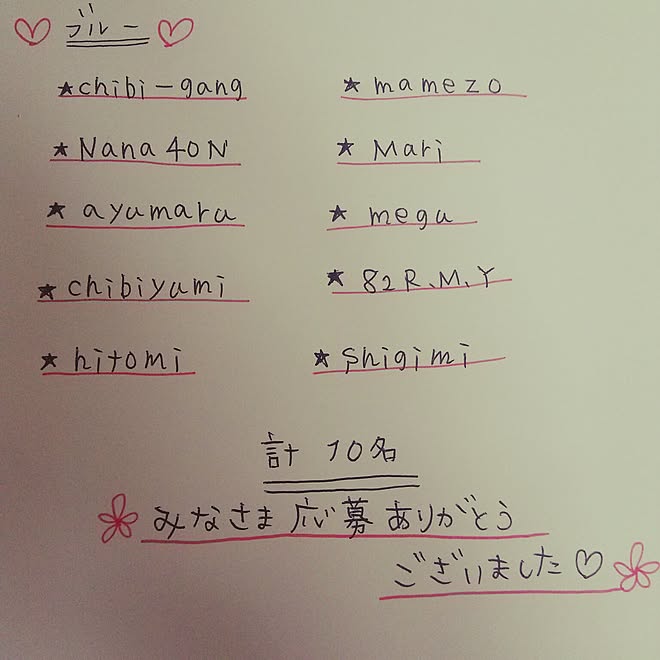 ♡ ブルー ♡
★chibi-gang
★Nana40N
★ayumaru
★chibiyumi
★hitomi
★mamezo
★Mari
★megu
★82R.M.Y
★shigimi
計 10名
みなさま 応募 ありがとう
ございました♡